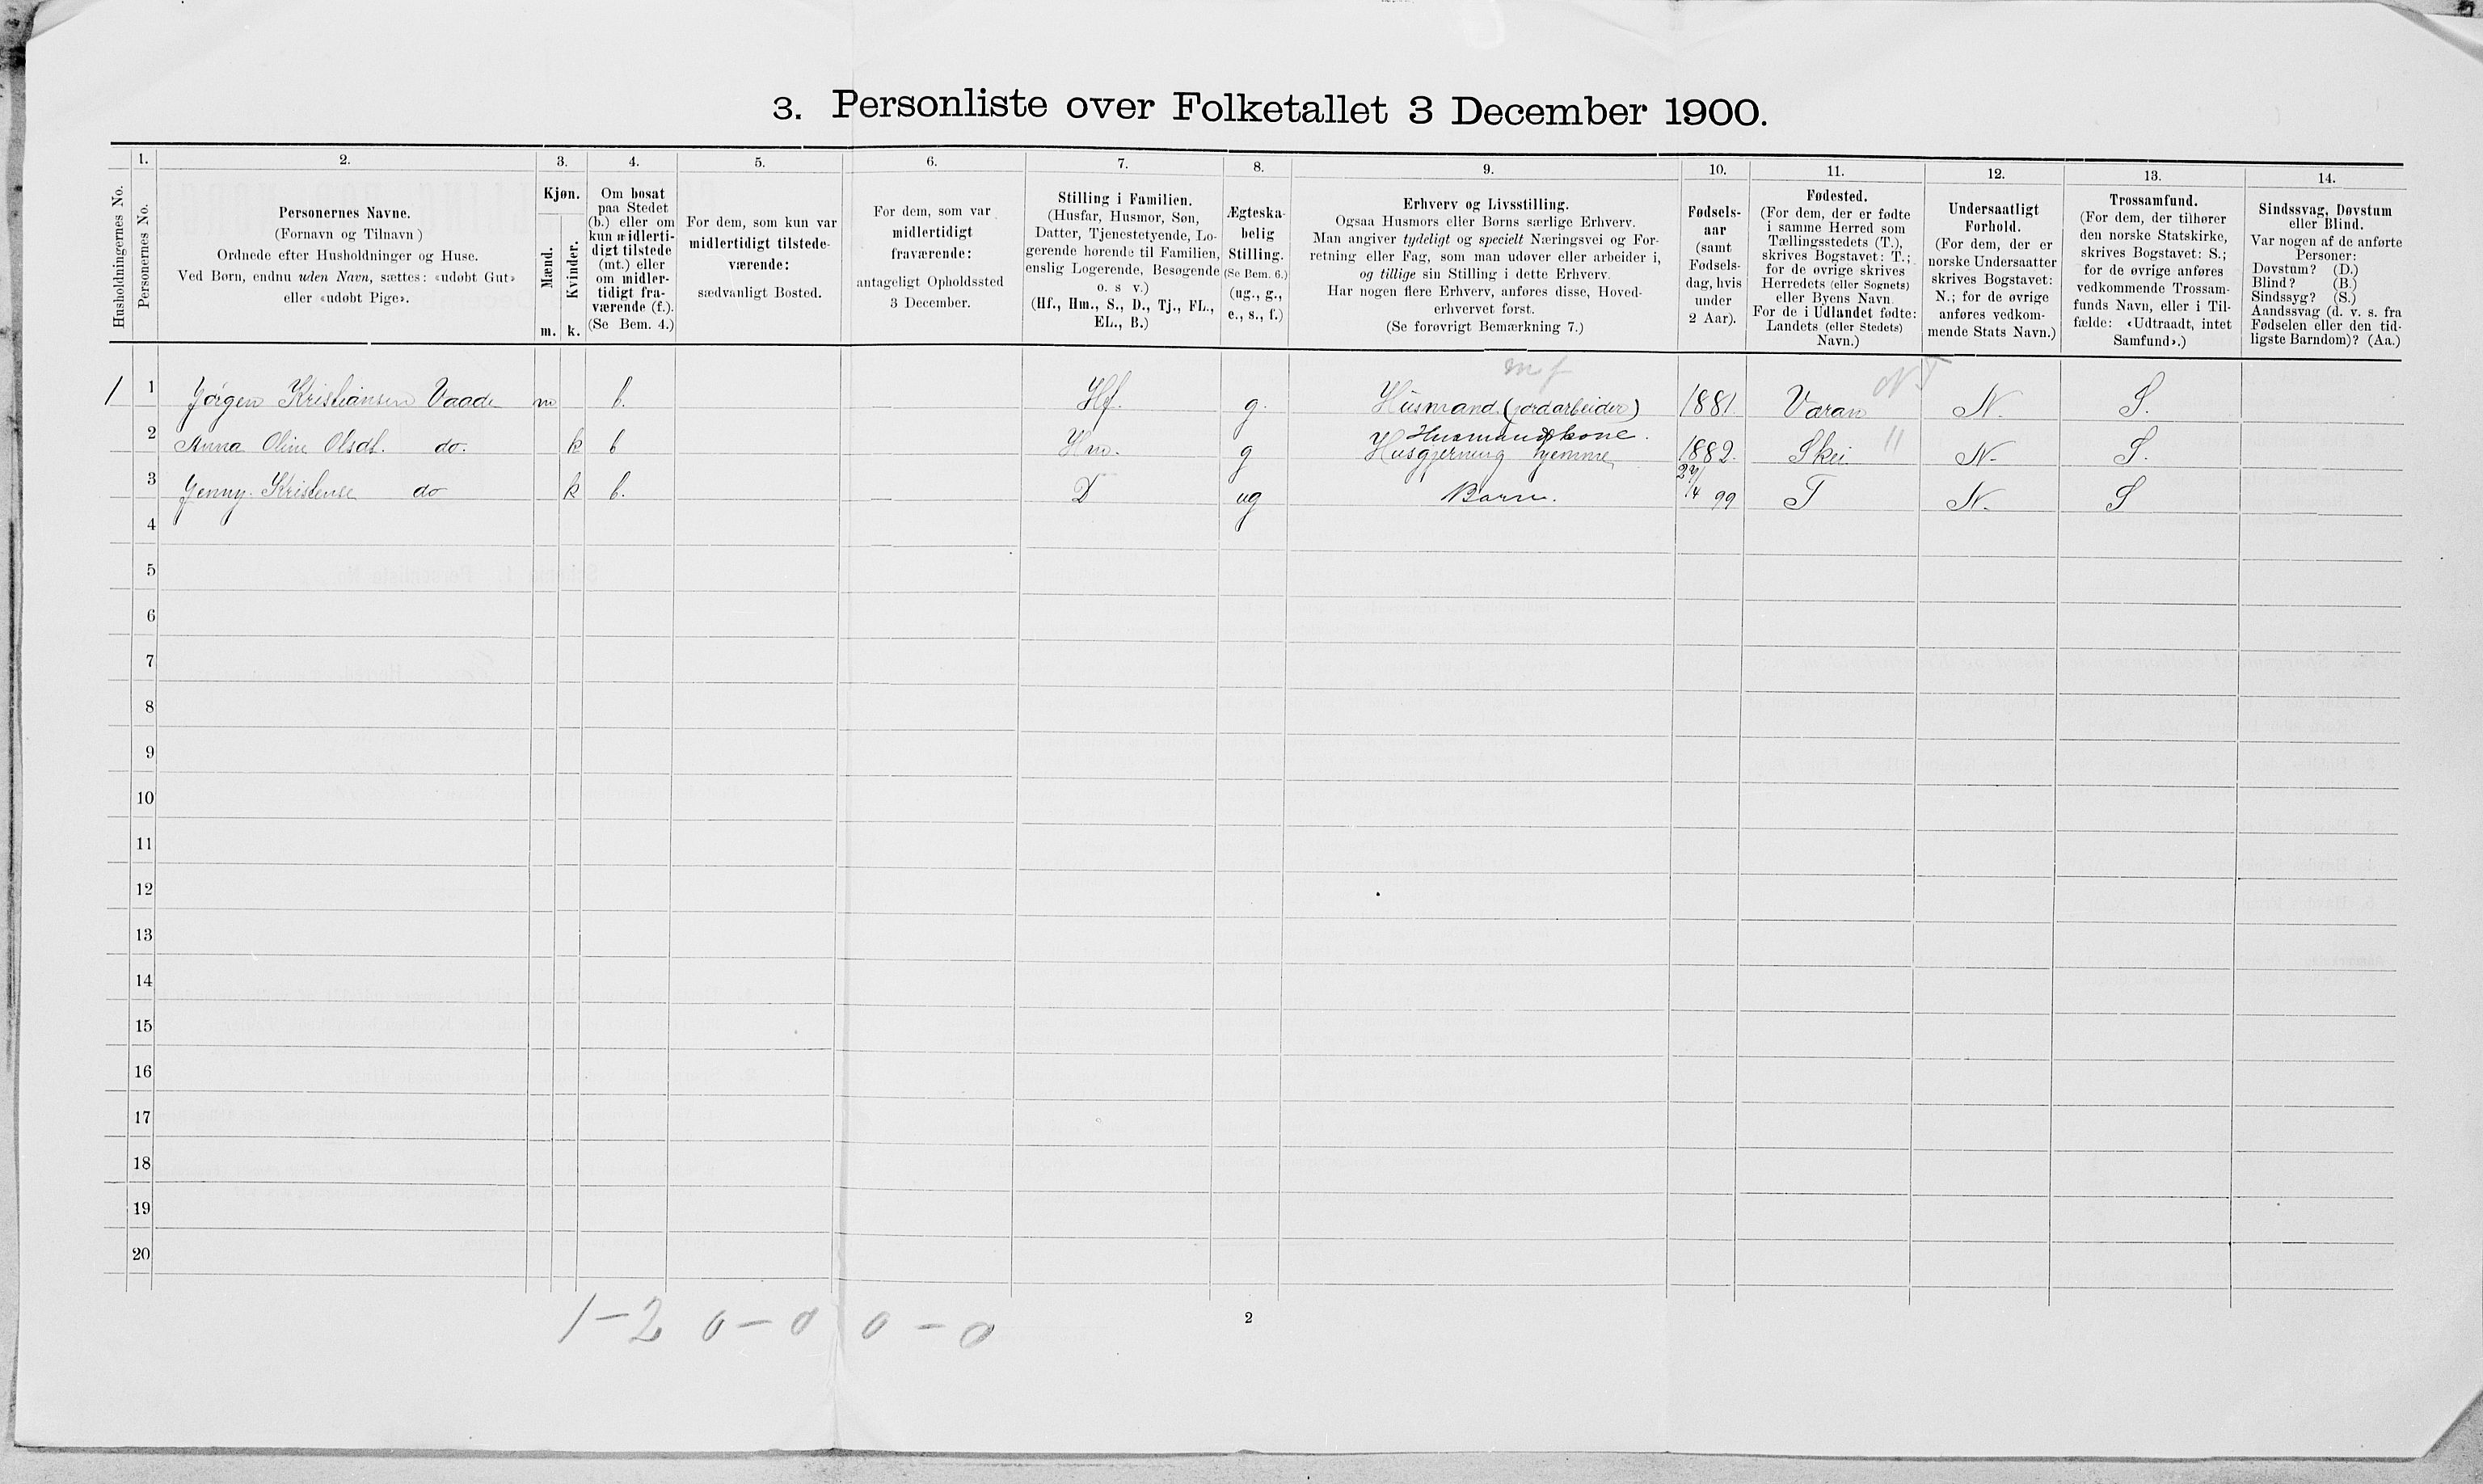 3. Personliste over Folketallet 3 December 1900.
1. 2. 3. 4. 5. 6. 7. 8. 9. 10. 11. 12. 13. 14.
Husholdningernes No.
Personernes No.
Personernes Navne.
(Fornavn og Tilnavn)
Ordnede efter Husholdninger og Huse.
Ved Børn, endnu uden Navn, sættes: «udøbt Gut»
eller «udøbt Pige».
Kjøn.
Mænd.
Kvinder.
m. k.
Om bosat
paa Stedet
(b.) eller om
kun midlerti-
digt tilstede
(mt.) eller
om midler-
tidigt fra-
værende (f.).
(Se Bem. 4.)
For dem, som kun var
midlertidigt tilstede-
værende:
sædvanligt Bosted.
For dem, som var
midlertidigt
fraværende:
antageligt Opholdssted
3 December.
Stilling i Familien.
(Husfar, Husmor, Søn,
Datter, Tjenestetyende, Lo-
gerende hørende til Familien,
enslig Logerende, Besøgende
o. s v.)
(Hf., Hm., S., D., Tj., FL.,
EL., B.)
Ægteska-
belig
Stilling.
(Se Bem. 6.)
(ug., g.,
e., s., f.)
Erhverv og Livsstilling.
Ogsaa Husmors eller Børns særlige Erhverv.
Man angiver tydeligt og specielt Næringsvei og For-
retning eller Fag, som man udøver eller arbeider i,
og tillige sin Stilling i dette Erhverv.
Har nogen flere Erhverv, anføres disse, Hoved-
erhvervet først.
(Se forøvrigt Bemærkning 7.)
Fødsels-
aar
(samt
Fødsels-
dag, hvis
under
2 Aar).
Fødested.
(For dem, der er fødte
i samme Herred som
Tællingsstedets (T.),
skrives Bogstavet: T.;
for de øvrige skrives
Herredets (eller Sognets)
eller Byens Navn.
For de i Udlandet fødte:
Landets (eller Stedets)
Navn.)
Undersaatligt
Forhold.
(For dem, der er
norske Undersaatter
skrives Bogstavet:
N.; for de øvrige
anføres vedkom-
mende Stats Navn.)
Trossamfund.
(For dem, der tilhører
den norske Statskirke,
skrives Bogstavet: S.;
for de øvrige anføres
vedkommende Trossam-
funds Navn, eller i Til-
fælde: «Udtraadt, intet
Samfund».)
Sindssvag, Døvstum
eller Blind.
Var nogen af de anførte
Personer:
Døvstum? (D.)
Blind? (B.)
Sindssyg? (S.)
Aandssvag (d. v. s. fra
Fødselen eller den tid-
ligste Barndom)? (Aa.)
mf NT
1 1 Jørgen Kristiansen Vaade m b. Hf. g. Husmand (jordarbeider) 1881. Varan N. S.
Husmandskone.
2 Anna Oline Olsdt. do. k b Hm. g Husgjerning hjemme 1882. Skei " N. S.
3 Jenny Kristense do k b. D ug Barn. 24/4 99 T N. S
4
5
6
7
8
9
10
11
12
13
14
15
16
17
18
19
20
1-2 0-0 0-0
2